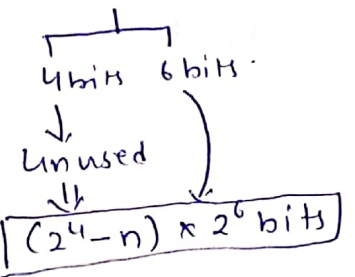 4 bits 6 bits.
Unused
(2⁴-n) x 2⁶ bits